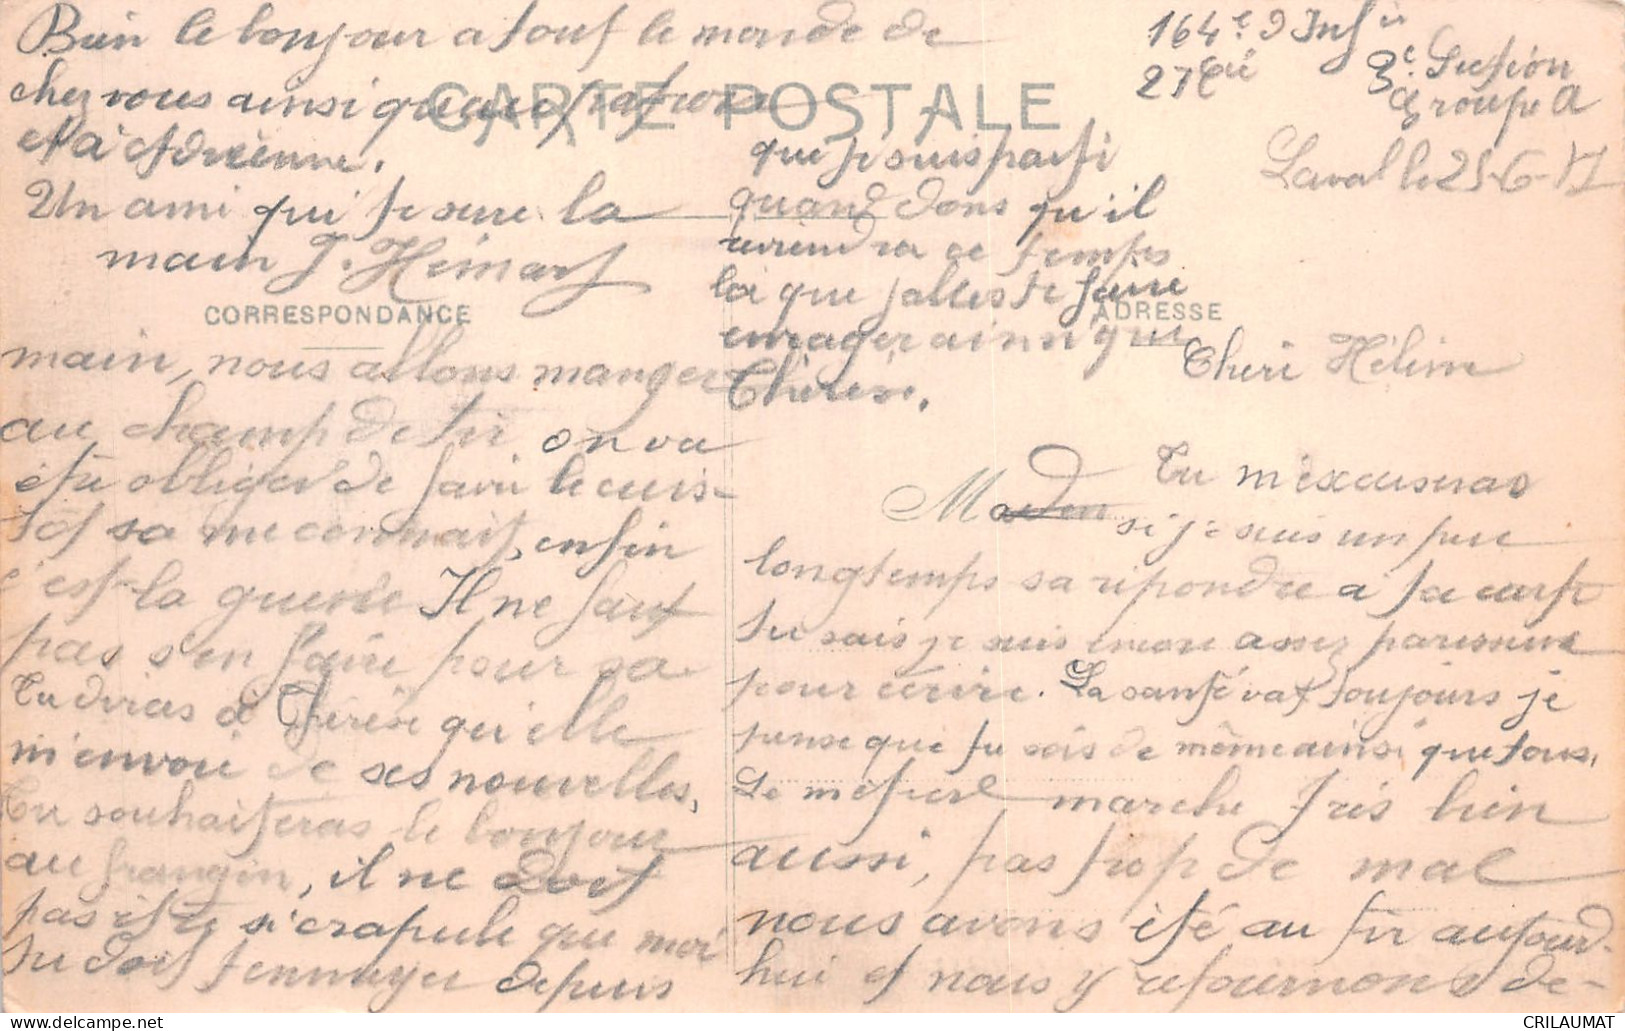 164e d'Infie
27e Cie 3e Section
Groupe A
Laval le 25-6-17
Cheri Hélim
CARTE POSTALE
CORRESPONDANCE
ADRESSE
M
Tu m'excuseras
si je suis un peu
longtemps sa répondre a ta carte
tu sais je suis encore assez paresseux
pour écrire. La santé vat toujours je
pense que tu sois de même ainsi que tous,
Le métier marche tris bien
aussi, pas trop de mal
nous avons été au tir aujourd-
hui et nous y retournons de-
main, nous allons manger
au champ de tir on va
étre obliger de fairi le cuis-
tot sa me connait, enfin
c'est-la guerre Il ne faut
pas s'en faire pour sa
Tu diras à Thérèse qu'elle
m'envoie de ses nouvelles,
Tu souhaiteras le bonjour
au frangin, il ne doit
pas être si crapule que moi
tu doit t'ennuyer depuis
que je suis parti
quand dons qu'il
reviendra ce temps
la que j'alles te faire
enrager ainsi que
Thérèse.
Bien le bonjour a tout le monde de
chez vous ainsi que
et a Adrienne.
Un ami qui te serre la
main J. Hémary
CRILAUMAT